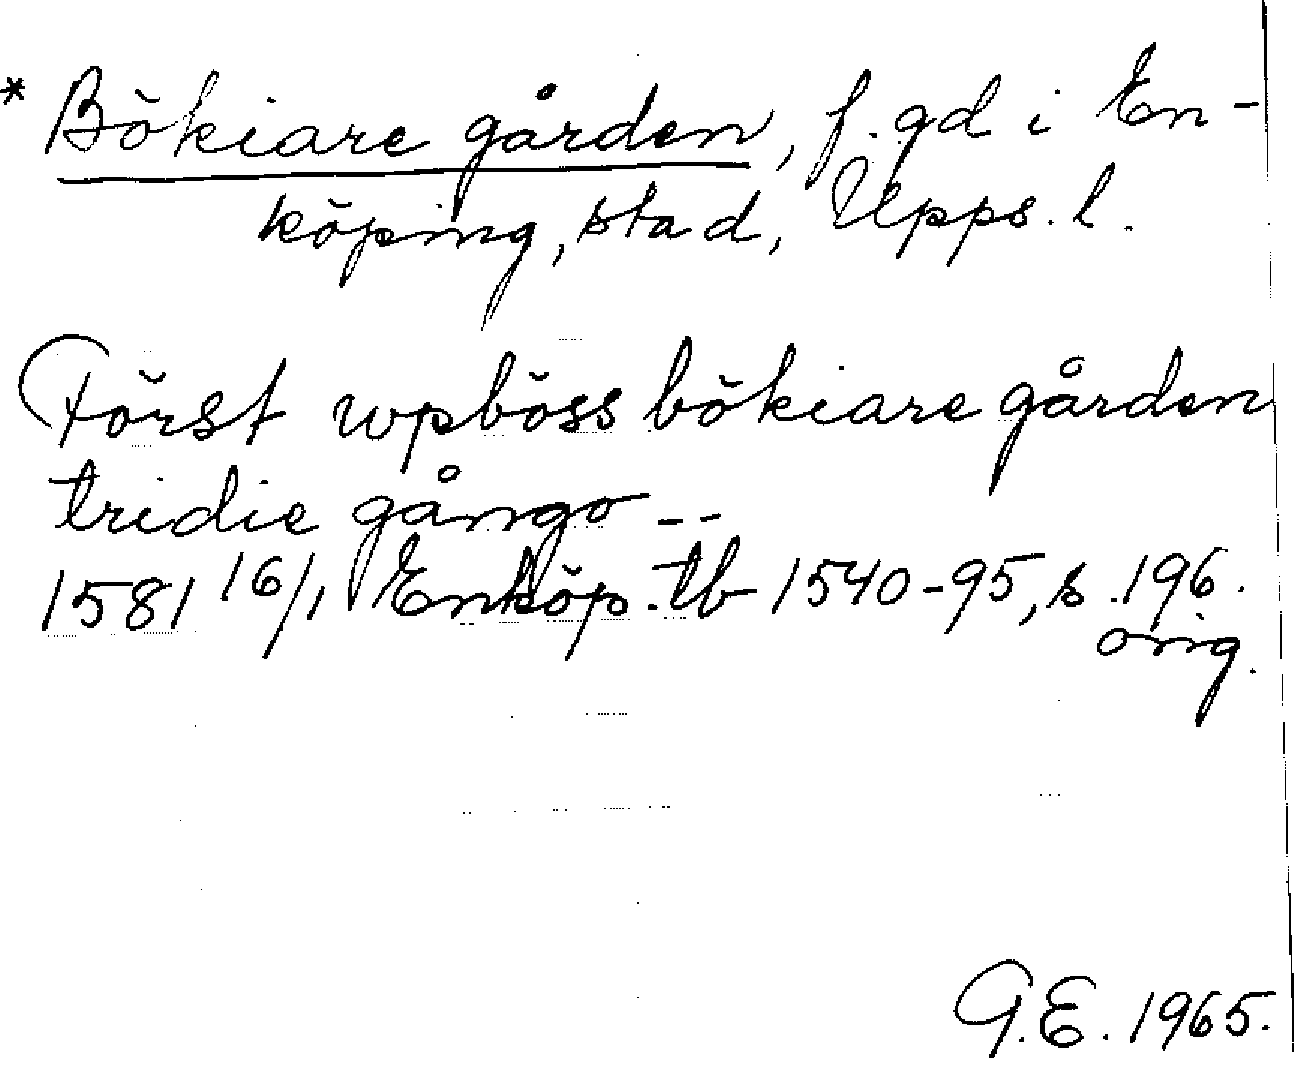 * Bökiare gården, f. gd i En-
köping, stad, Upps. l.
Först wpböss bökiare gården
tridie gångo --
1581 16/1 Enköp. tb 1540-95, s. 196.
orig.
G.E. 1965.